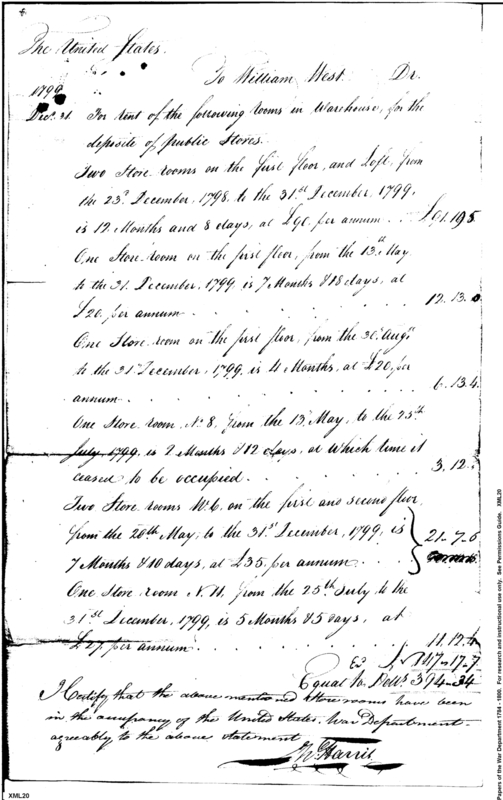 The United States.
To William West Dr.
1799
Dec. 31 For rent of the following rooms in Warehouse, for the
deposite of public Stores.
Two Store rooms on the first floor, and Loft, from
the 23d December, 1798, to the 31st December, 1799,
is 12 Months and 8 days, at £90 per annum . . £91.19.5
One Store room on the first floor, from the 13th May
to the 31. December, 1799 is 7 Months & 18 days, at
£20 per annum 12.13.
One Store room on the first floor, from the 30. Augt
to the 31 December, 1799, is 4 Months, at £20, per
annum 6.13.4
One Store room, No. 8, from the 13 May, to the 25th
July, 1799, is 2 Months & 12 days, at which time it
ceased to be occupied 3.12.
Two Store rooms No. 6, on the first and second floor,
from the 20th May, to the 31st December, 1799, is
7 Months & 10 days, at £35, per annum 21-7-6
One Store room N. 11. from the 25th July to the
31st December, 1799, is 5 Months & 5 days, at
£27, per annum 11.12.
£147-17-7
Equal to Dolls 394-34
I Certify that the above mentioned Store rooms have been
in the occupancy of the United States, War Department
agreeably to the above statement
Harris
XML20
Papers of the War Department 1784 - 1800. For research and instructional use only. See Permissions Guide. XML20